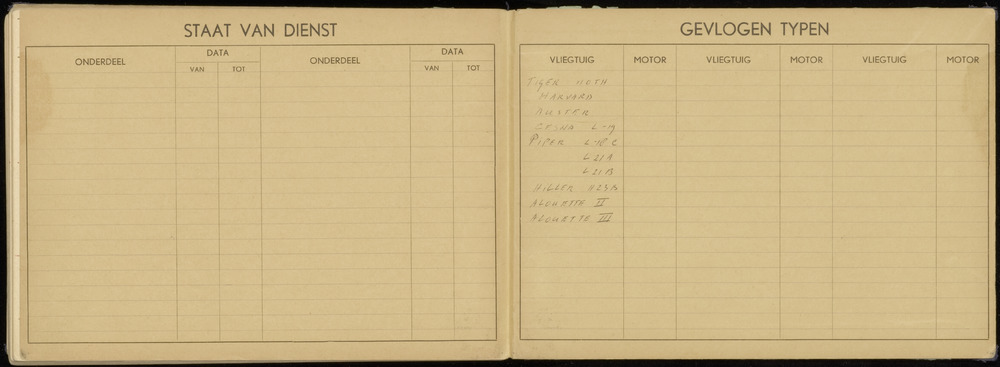 STAAT VAN DIENST
ONDERDEEL
DATA
VAN TOT
ONDERDEEL
DATA
VAN TOT
GEVLOGEN TYPEN
VLIEGTUIG MOTOR VLIEGTUIG MOTOR VLIEGTUIG MOTOR
TIGER MOTH
HARVARD
AUSTER
CESNA L-19
PIPER L-18 C
L 21 A
L 21 B
HILLER H23B
ALOUETTE II
ALOUETTE III